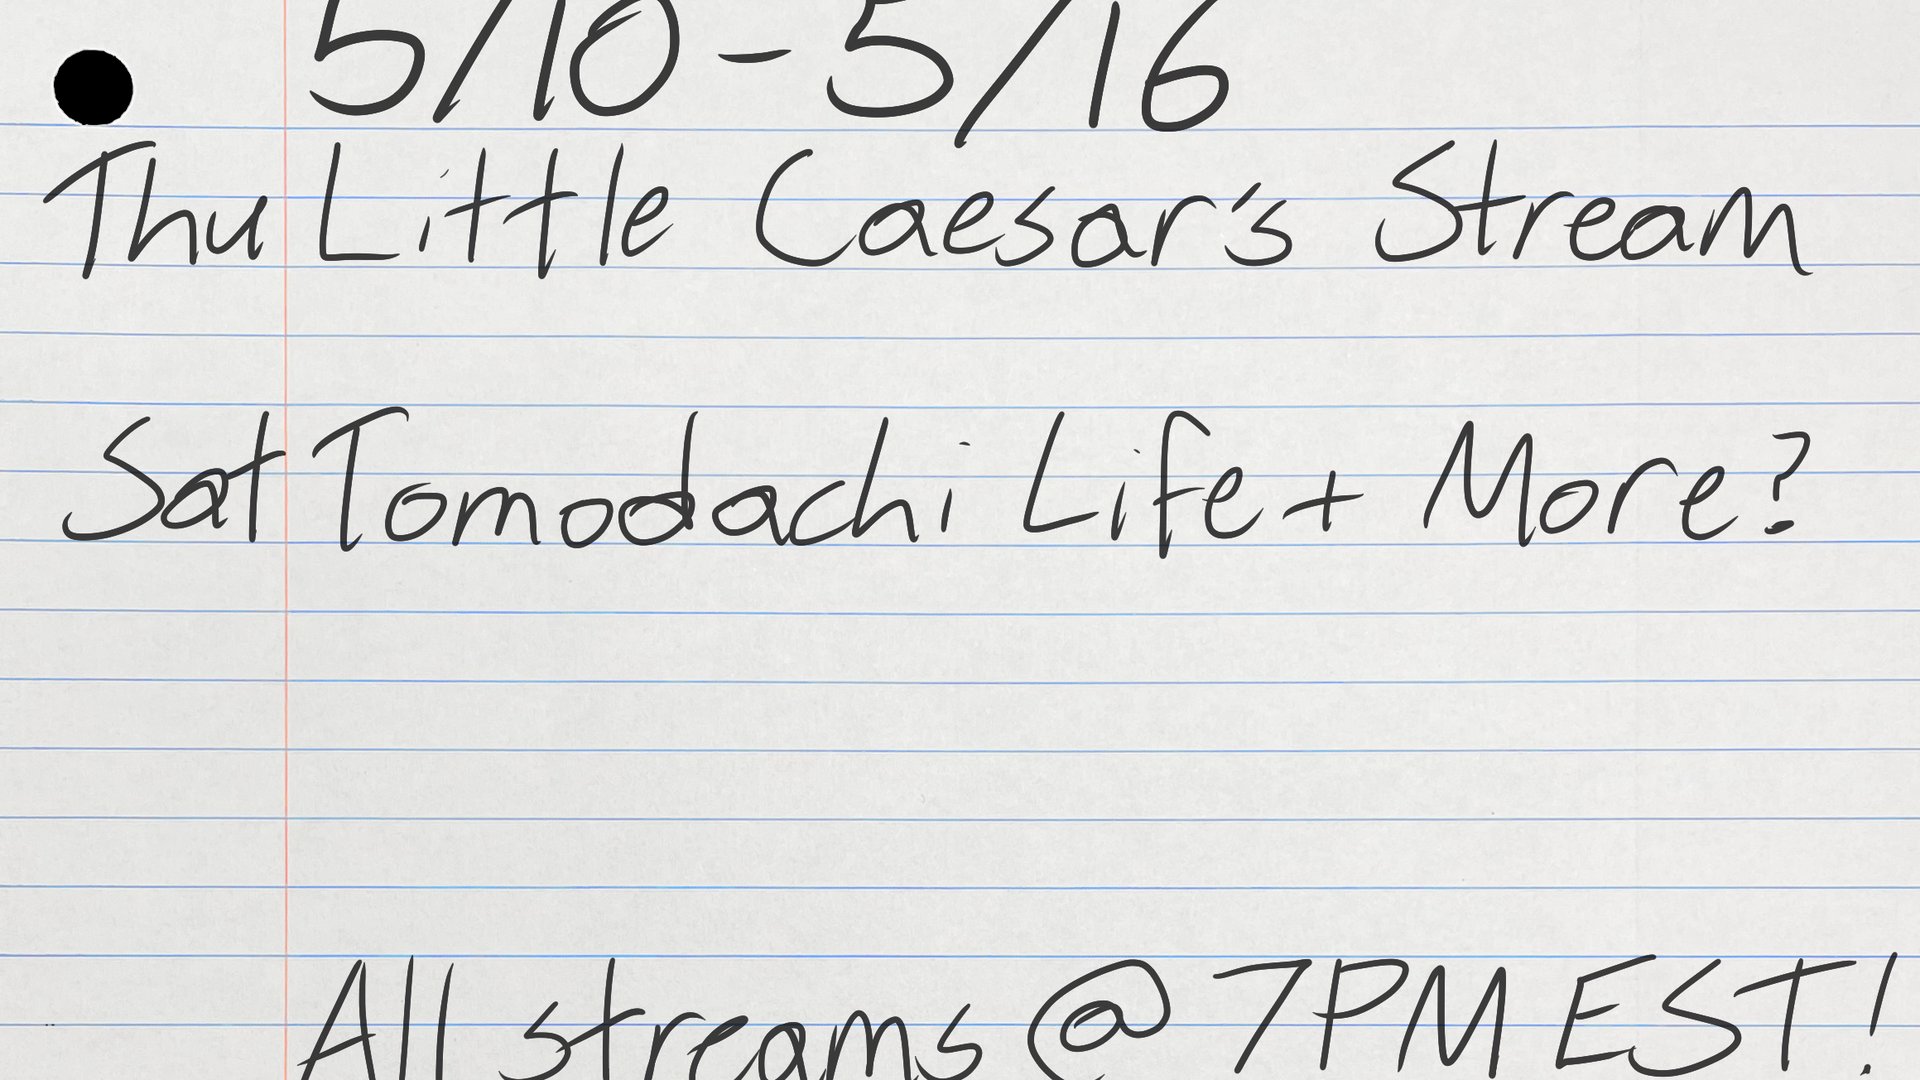 5/10 - 5/16
Thu Little Caesar's Stream
Sat Tomodachi Life + More?
All streams @ 7PM EST!